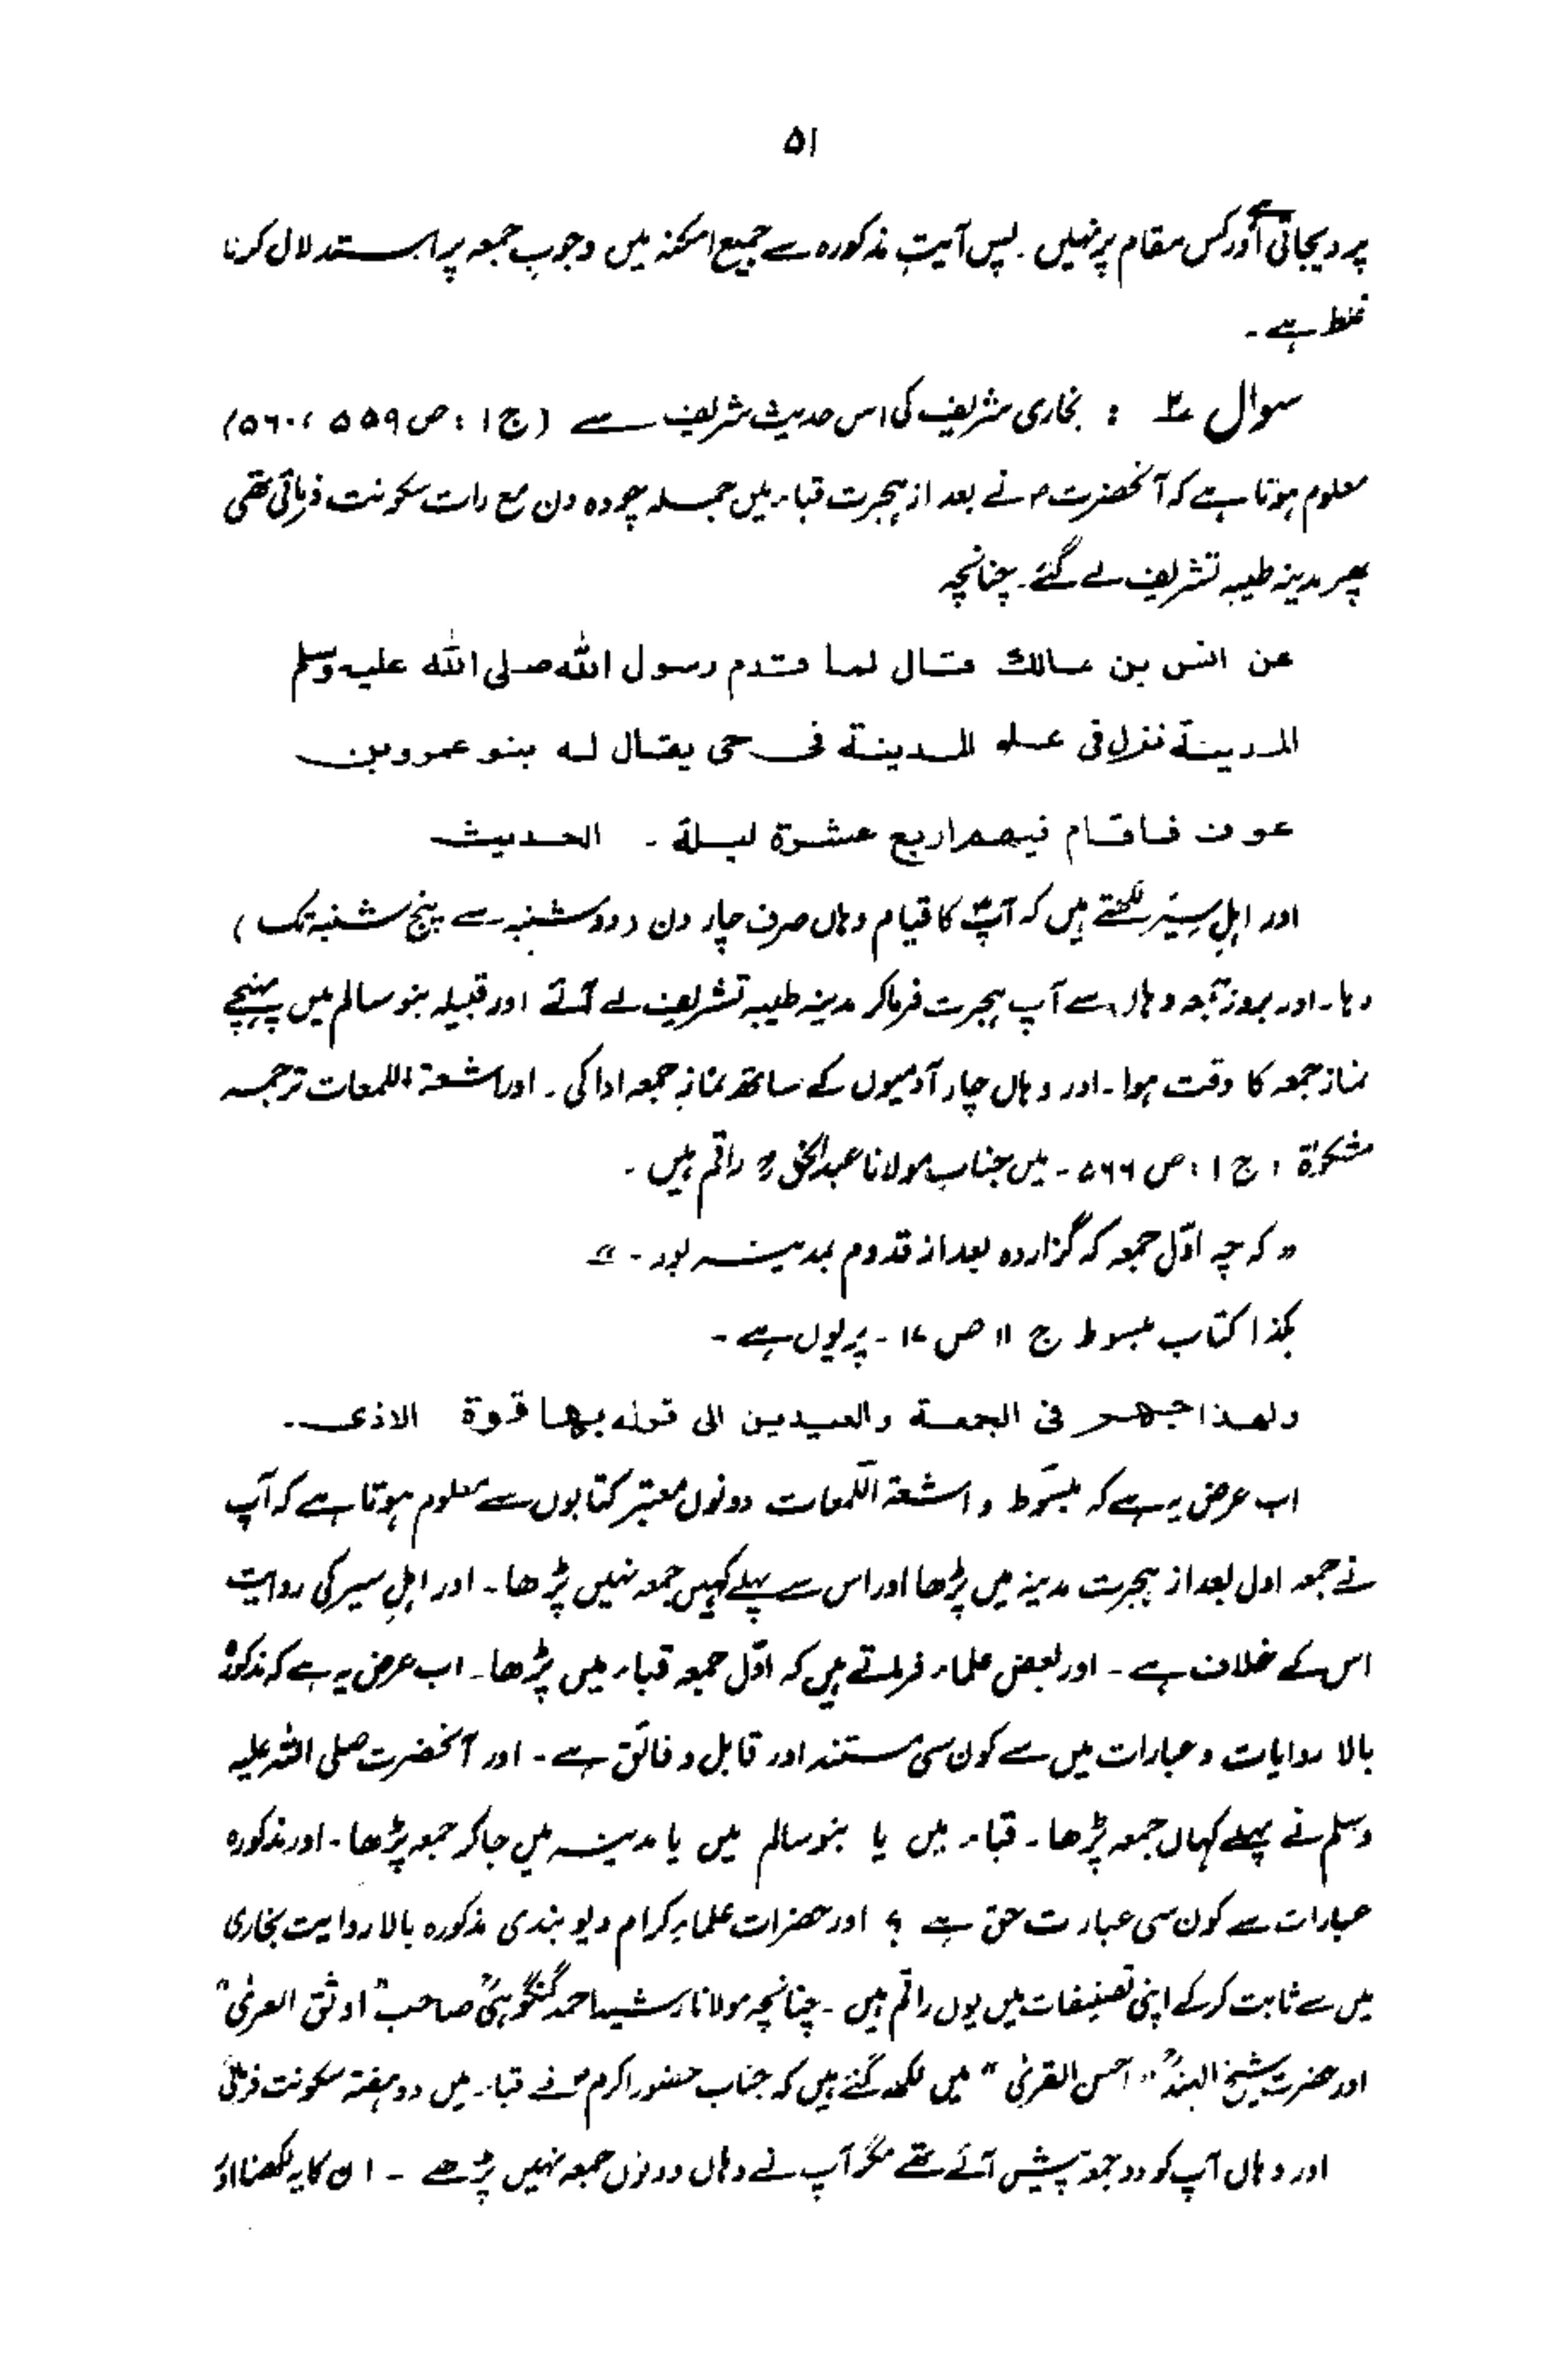 ۵۱
پر دیجاتی ہے اور کس مقام پر نہیں۔ پس آیتِ مذکورہ سے جمیع امکنہ میں وجوبِ جمعہ پر استدلال کرنا
غلط ہے۔
سوال ۲ : بخاری شریف کی اس حدیث شریف سے (ج ۱ : ص ۵۵۹ ، ۵۶۰)
معلوم ہوتا ہے کہ آنحضرت ؐ نے بعد از ہجرت قباء میں جملہ چودہ دن مع رات سکونت فرمائی تھی
پھر مدینہ طیبہ تشریف لے گئے۔ چنانچہ
عن انس بن مالك قال لما قدم رسول الله صلى الله عليه وسلم
المدينة نزل فی علو المدينة فی حی يقال له بنو عمرو بن
عوف فاقام فيهم اربع عشرة ليلة ۔ الحديث
اور اہلِ سِیَر لکھتے ہیں کہ آپؐ کا قیام وہاں صرف چار دن (دو شنبہ سے پنج شنبہ تک)
رہا۔ اور بروز جمعہ وہاں سے آپ ہجرت فرما کر مدینہ طیبہ تشریف لے آئے اور قبیلہ بنو سالم میں پہنچے
نماز جمعہ کا وقت ہوا۔ اور وہاں چار آدمیوں کے ساتھ نمازِ جمعہ ادا کی۔ اور اشعۃ اللمعات ترجمہ
مشکوٰۃ ، ج ۱ ، ص ۵۶۶ ۔ میں جناب مولانا عبدالحق ؒ راقم ہیں۔
" کہ چہ اوّل جمعہ کہ گزاردہ بعد از قدوم بمدینہ بود ۔ "
ہکذا کتاب مبسوط ج ۱۱ ص ۱۷ ۔ پر یوں ہے ۔
ولهذا جهر فی الجمعة والعيدين الی قوله بها قوة الاذی۔
اب عرض یہ ہے کہ مبسوط و اشعۃ اللمعات دونوں معتبر کتابوں سے معلوم ہوتا ہے کہ آپ
نے جمعہ اول بعد از ہجرت مدینہ میں پڑھا اور اس سے پہلے کہیں جمعہ نہیں پڑھا۔ اور اہلِ سیر کی روایت
اس کے خلاف ہے ۔ اور بعض علماء فرماتے ہیں کہ اوّل جمعہ قباء میں پڑھا۔ اب عرض یہ ہے کہ مذکورہ
بالا روایات و عبارات میں سے کون سی مستند اور قابل و فائق ہے۔ اور آنحضرت صلی اللہ علیہ
وسلم نے پہلے کہاں جمعہ پڑھا۔ قباء میں یا بنو سالم میں یا مدینہ میں جا کر جمعہ پڑھا۔ اور مذکورہ
عبارات سے کون سی عبارت حق ہے ؟ اور حضرات علماءِ کرام دیوبندی مذکورہ بالا روایت بخاری
میں سے ثابت کر کے اپنی تصنیفات میں یوں راقم ہیں ۔ چنانچہ مولانا رشید احمد گنگوہیؒ صاحب "اوثق العریٰ"
اور حضرت شیخ الہندؒ "احسن القریٰ" میں لکھ گئے ہیں کہ جناب حضور اکرم ؐ نے قباء میں دو ہفتہ سکونت فرمائی
اور وہاں آپ کو دو جمعہ پیش آئے تھے مگر آپ نے وہاں دونوں جمعہ نہیں پڑھے ۔ ان کا یہ لکھنا اور